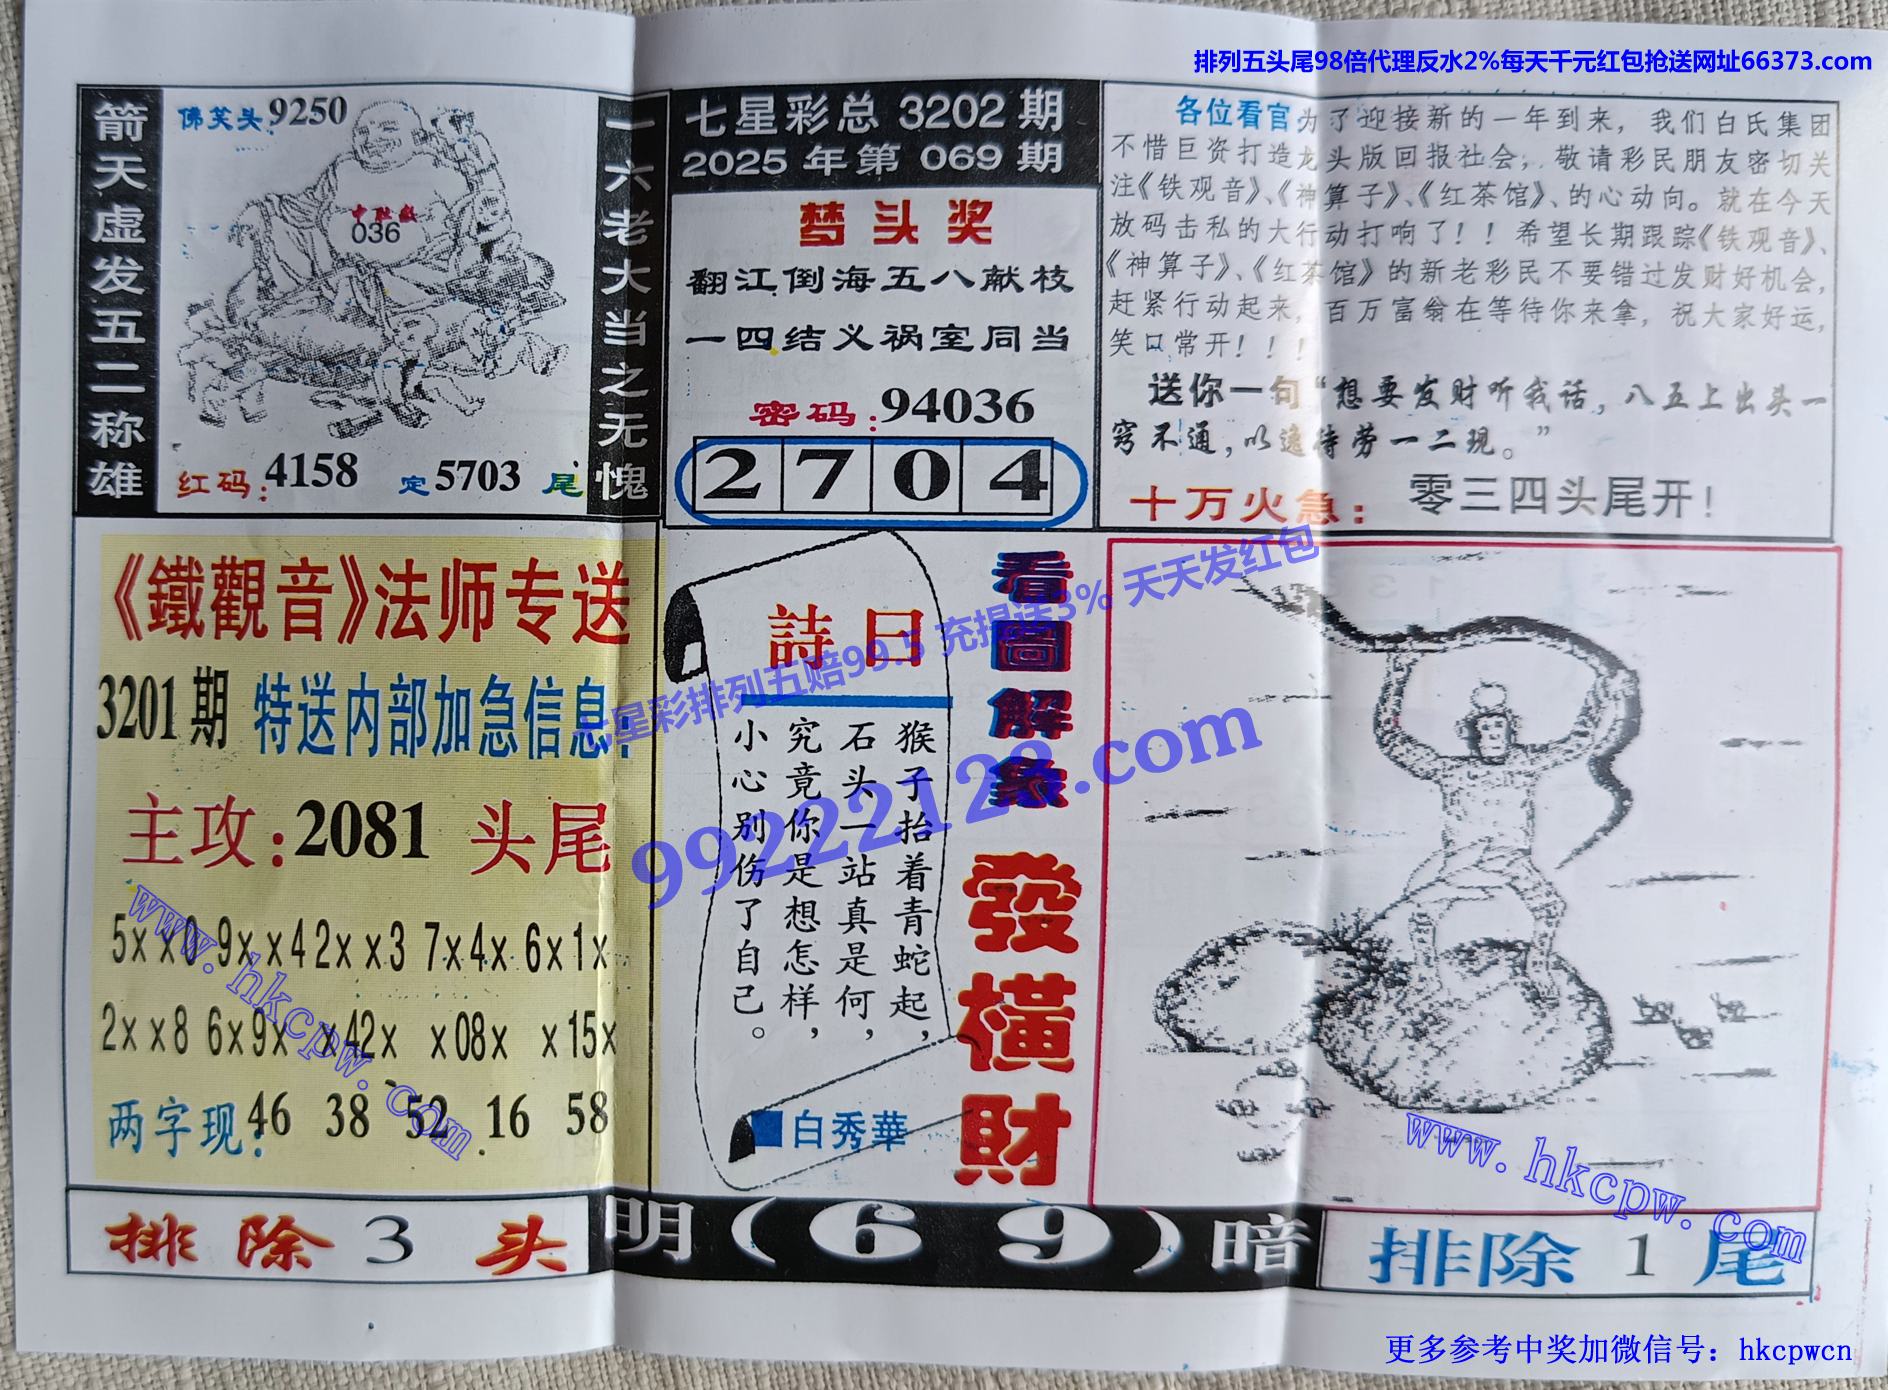 排列五头尾98倍代理反水2%每天千元红包抢送网址66373.com
箭天虚发五二称雄
佛笑头:9250
中肚藏
036
红码:4158 定5703尾
一六老大当之无愧
七星彩总 3202 期
2025 年第 069 期
梦头奖
翻江倒海五八献枝
一四结义祸室同当
密码:94036
2 7 0 4
各位看官为了迎接新的一年到来，我们白氏集团
不惜巨资打造龙头版回报社会，敬请彩民朋友密切关
注《铁观音》、《神算子》、《红茶馆》、的心动向。就在今天
放码击私的大行动打响了！！希望长期跟踪《铁观音》、
《神算子》、《红茶馆》的新老彩民不要错过发财好机会，
赶紧行动起来，百万富翁在等待你来拿，祝大家好运，
笑口常开！！！
送你一句“想要发财听我话，八五上出头一
窍不通，以逸待劳一二现。”
十万火急：零三四头尾开！
《鐵觀音》法师专送
3201期 特送内部加急信息：
主攻:2081 头尾
5××0 9××4 2××3 7×4× 6×1×
2××8 6×9× ×42× ×08× ×15×
两字现：46 38 52 16 58
詩曰
猴子抬着青蛇起，
石头一站真是何，
究竟你是想怎样，
小心别伤了自己。
白秀華
看圖解象
發橫財
七星彩排列五赔99.5 充提送3% 天天发红包
99222128.com
www.hkcpw.com
www.hkcpw.com
排除 3 头
明(69)暗
排除 1 尾
更多参考中奖加微信号：hkcpwcn